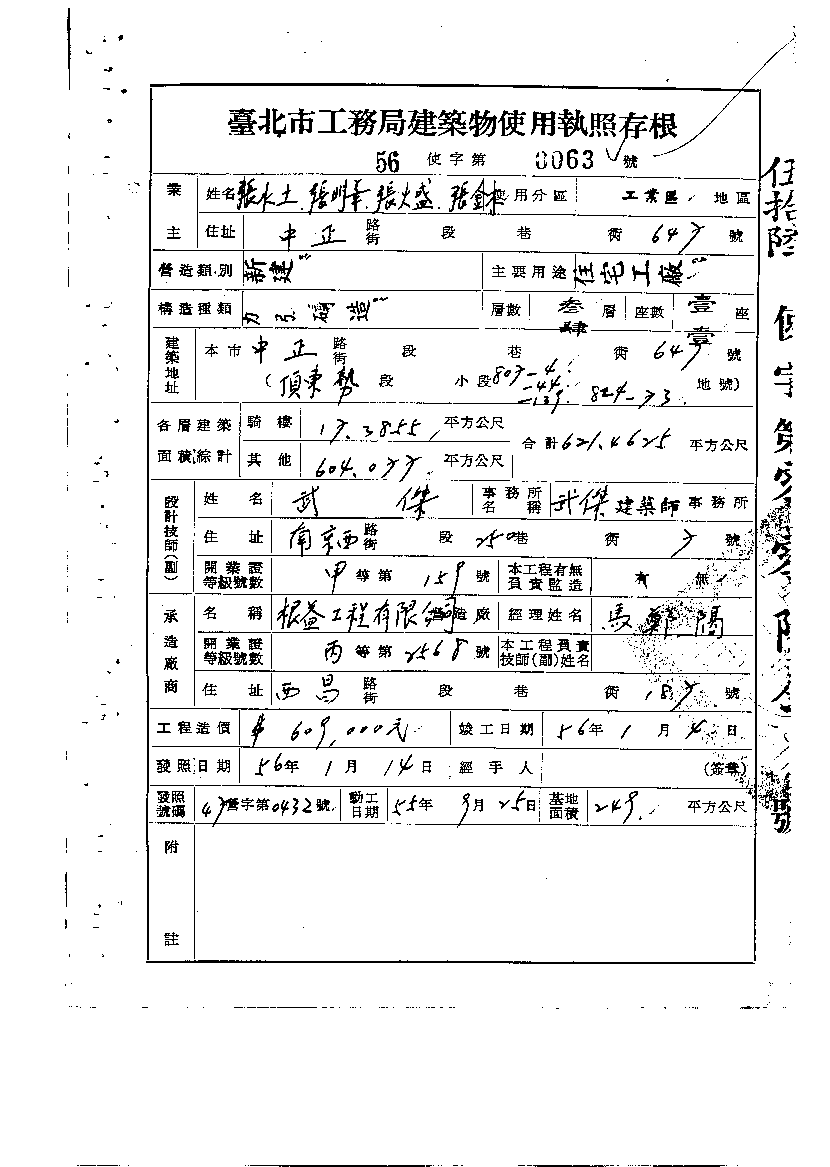 臺北市工務局建築物使用執照存根
56 使字第 0063 號
業主 姓名 張水土 張明華 張火盛 張金木 使用分區 工業區 地區
住址 中正 路街 段 巷 衖 647 號
營造類別 新建 主要用途 住宅工廠
構造種類 加強磚造 層數 叁肆 層 座數 壹壹 座
建築地址 本市 中正 路街 段 巷 衖 647 號
(頂東勢 段 小段 807-4. -44. -139. 824-73. 地號)
各層建築面積綜計 騎樓 17.3855 平方公尺 合計 621.4625 平方公尺
其他 604.077 平方公尺
設計技師(副) 姓名 武傑 事務所名稱 武傑建築師事務所
住址 南京西 路街 段 250 巷 衖 7 號
開業證等級號數 甲等第 159 號 本工程有無負責監造 有 無
承造廠商 名稱 根益工程有限公司 營造廠 經理姓名 馬鄭陽
開業證等級號數 丙等第 2568 號 本工程負責技師(副)姓名
住址 西昌 路街 段 巷 衖 187 號
工程造價 $ 609,000元 竣工日期 56年 1月 4日
發照日期 56年 1月 14日 經手人 (簽章)
發照號碼 47營字第0432號 動工日期 55年 9月 25日 基地面積 249. 平方公尺
附註
伍拾陸 使字第零零陸叁號